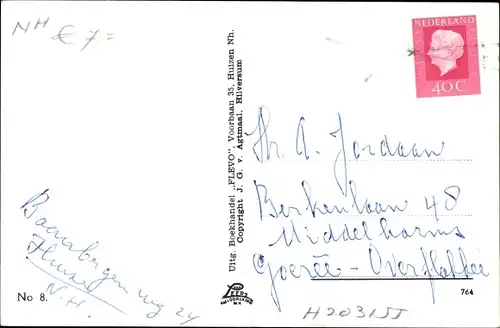 NH
€ 7=
NEDERLAND
40C
Uitg. Boekhandel „FLEVO”, Voorbaan 35, Huizen Nh.
Copyright J. G. v. Agtmaal, Hilversum
Hr. A. Jordaan
Berkenlaan 48
Middelharnis
Goeree-Overflakkee
weg 24
N.H.
No 8.
764
H20315J